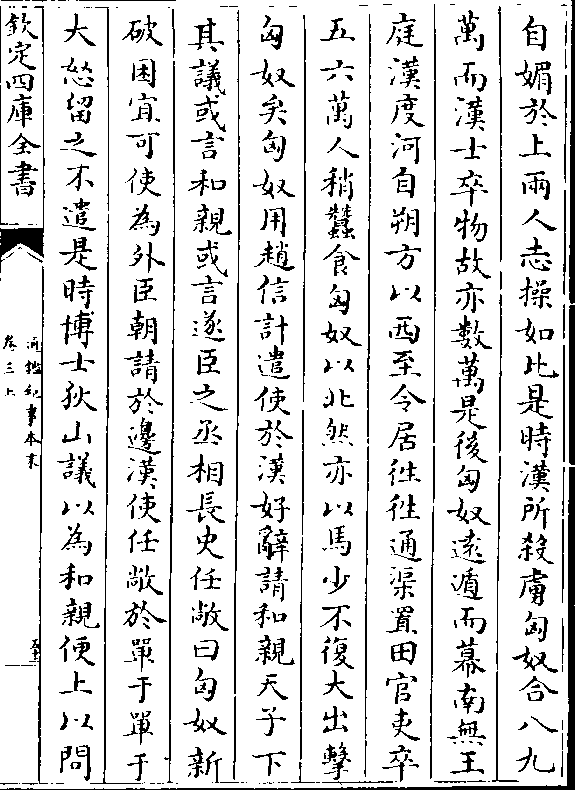 自媚於上兩人志操如此是時漢所殺虜匈奴合八九
萬而漢士卒物故亦數萬是後匈奴遠遁而幕南無王
庭漢度河自朔方以西至令居往往通渠置田官吏卒
五六萬人稍蠶食匈奴以北然亦以馬少不復大出擊
匈奴矣匈奴用趙信計遣使於漢好辭請和親天子下
其議或言和親或言遂臣之丞相長史任敞曰匈奴新
破困宜可使為外臣朝請於邊漢使任敞於單于單于
大怒留之不遣是時博士狄山議以為和親便上以問
欽定四庫全書
通鑑紀事本末
卷三上